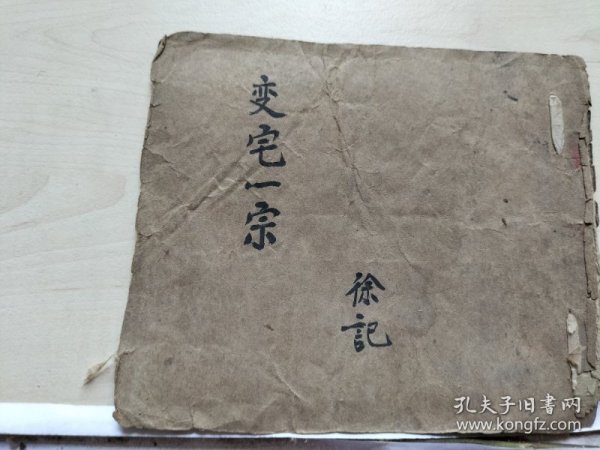 变宅一宗
徐記
孔夫子旧書网
www.kongfz.com